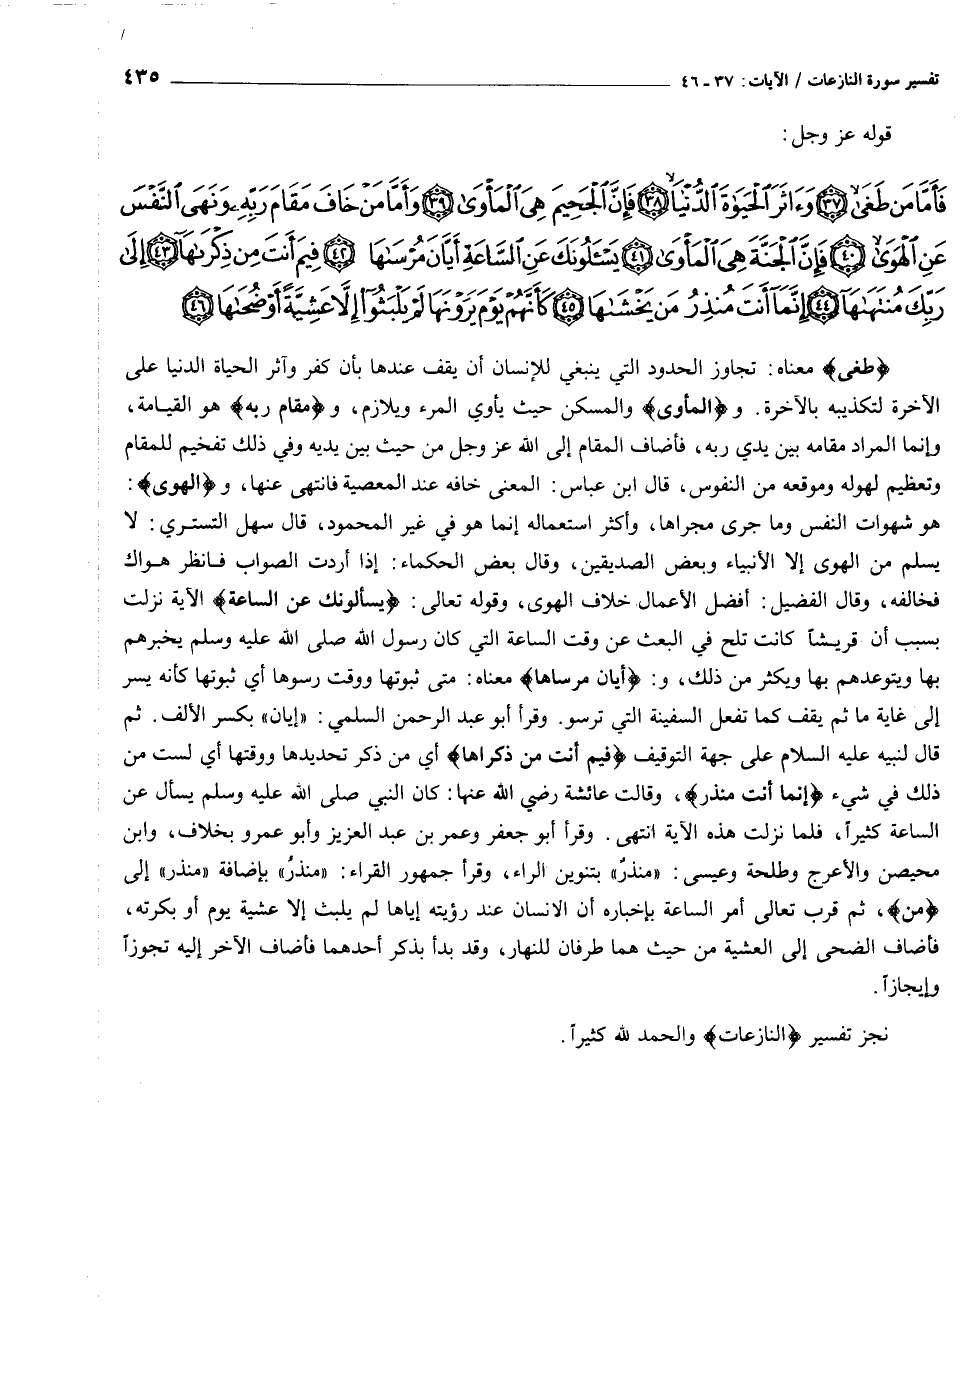 تفسير سورة النازعات / الآيات: ٣٧ - ٤٦ ٤٣٥
قوله عز وجل:
فَأَمَّا مَن طَغَىٰ ﴿٣٧﴾ وَءَاثَرَ ٱلْحَيَوٰةَ ٱلدُّنْيَا ﴿٣٨﴾ فَإِنَّ ٱلْجَحِيمَ هِىَ ٱلْمَأْوَىٰ ﴿٣٩﴾ وَأَمَّا مَنْ خَافَ مَقَامَ رَبِّهِۦ وَنَهَى ٱلنَّفْسَ
عَنِ ٱلْهَوَىٰ ﴿٤٠﴾ فَإِنَّ ٱلْجَنَّةَ هِىَ ٱلْمَأْوَىٰ ﴿٤١﴾ يَسْـَٔلُونَكَ عَنِ ٱلسَّاعَةِ أَيَّانَ مُرْسَىٰهَا ﴿٤٢﴾ فِيمَ أَنتَ مِن ذِكْرَىٰهَآ ﴿٤٣﴾ إِلَىٰ
رَبِّكَ مُنتَهَىٰهَآ ﴿٤٤﴾ إِنَّمَآ أَنتَ مُنذِرُ مَن يَخْشَىٰهَا ﴿٤٥﴾ كَأَنَّهُمْ يَوْمَ يَرَوْنَهَا لَمْ يَلْبَثُوٓا۟ إِلَّا عَشِيَّةً أَوْ ضُحَىٰهَا ﴿٤٦﴾
﴿طغى﴾ معناه: تجاوز الحدود التي ينبغي للإنسان أن يقف عندها بأن كفر وآثر الحياة الدنيا على
الآخرة لتكذيبه بالآخرة. و ﴿المأوى﴾ والمسكن حيث يأوي المرء ويلازم، و ﴿مقام ربه﴾ هو القيامة،
وإنما المراد مقامه بين يدي ربه، فأضاف المقام إلى الله عز وجل من حيث بين يديه وفي ذلك تفخيم للمقام
وتعظيم لهوله وموقعه من النفوس، قال ابن عباس: المعنى خافه عند المعصية فانتهى عنها، و ﴿الهوى﴾:
هو شهوات النفس وما جرى مجراها، وأكثر استعماله إنما هو في غير المحمود، قال سهل التستري: لا
يسلم من الهوى إلا الأنبياء وبعض الصديقين، وقال بعض الحكماء: إذا أردت الصواب فانظر هواك
فخالفه، وقال الفضيل: أفضل الأعمال خلاف الهوى، وقوله تعالى: ﴿يسألونك عن الساعة﴾ الآية نزلت
بسبب أن قريشاً كانت تلح في البعث عن وقت الساعة التي كان رسول الله صلى الله عليه وسلم يخبرهم
بها ويتوعدهم بها ويكثر من ذلك، و: ﴿أيان مرساها﴾ معناه: متى ثبوتها ووقت رسوها أي ثبوتها كأنه يسر
إلى غاية ما ثم يقف كما تفعل السفينة التي ترسو. وقرأ أبو عبد الرحمن السلمي: «إيان» بكسر الألف. ثم
قال لنبيه عليه السلام على جهة التوقيف ﴿فيم أنت من ذكراها﴾ أي من ذكر تحديدها ووقتها أي لست من
ذلك في شيء ﴿إنما أنت منذر﴾، وقالت عائشة رضي الله عنها: كان النبي صلى الله عليه وسلم يسأل عن
الساعة كثيراً، فلما نزلت هذه الآية انتهى. وقرأ أبو جعفر وعمر بن عبد العزيز وأبو عمرو بخلاف، وابن
محيصن والأعرج وطلحة وعيسى: «منذرٌ» بتنوين الراء، وقرأ جمهور القراء: «منذرُ» بإضافة «منذر» إلى
﴿من﴾، ثم قرب تعالى أمر الساعة بإخباره أن الانسان عند رؤيته إياها لم يلبث إلا عشية يوم أو بكرته،
فأضاف الضحى إلى العشية من حيث هما طرفان للنهار، وقد بدأ بذكر أحدهما فأضاف الآخر إليه تجوزاً
وإيجازاً.
نجز تفسير ﴿النازعات﴾ والحمد لله كثيراً.